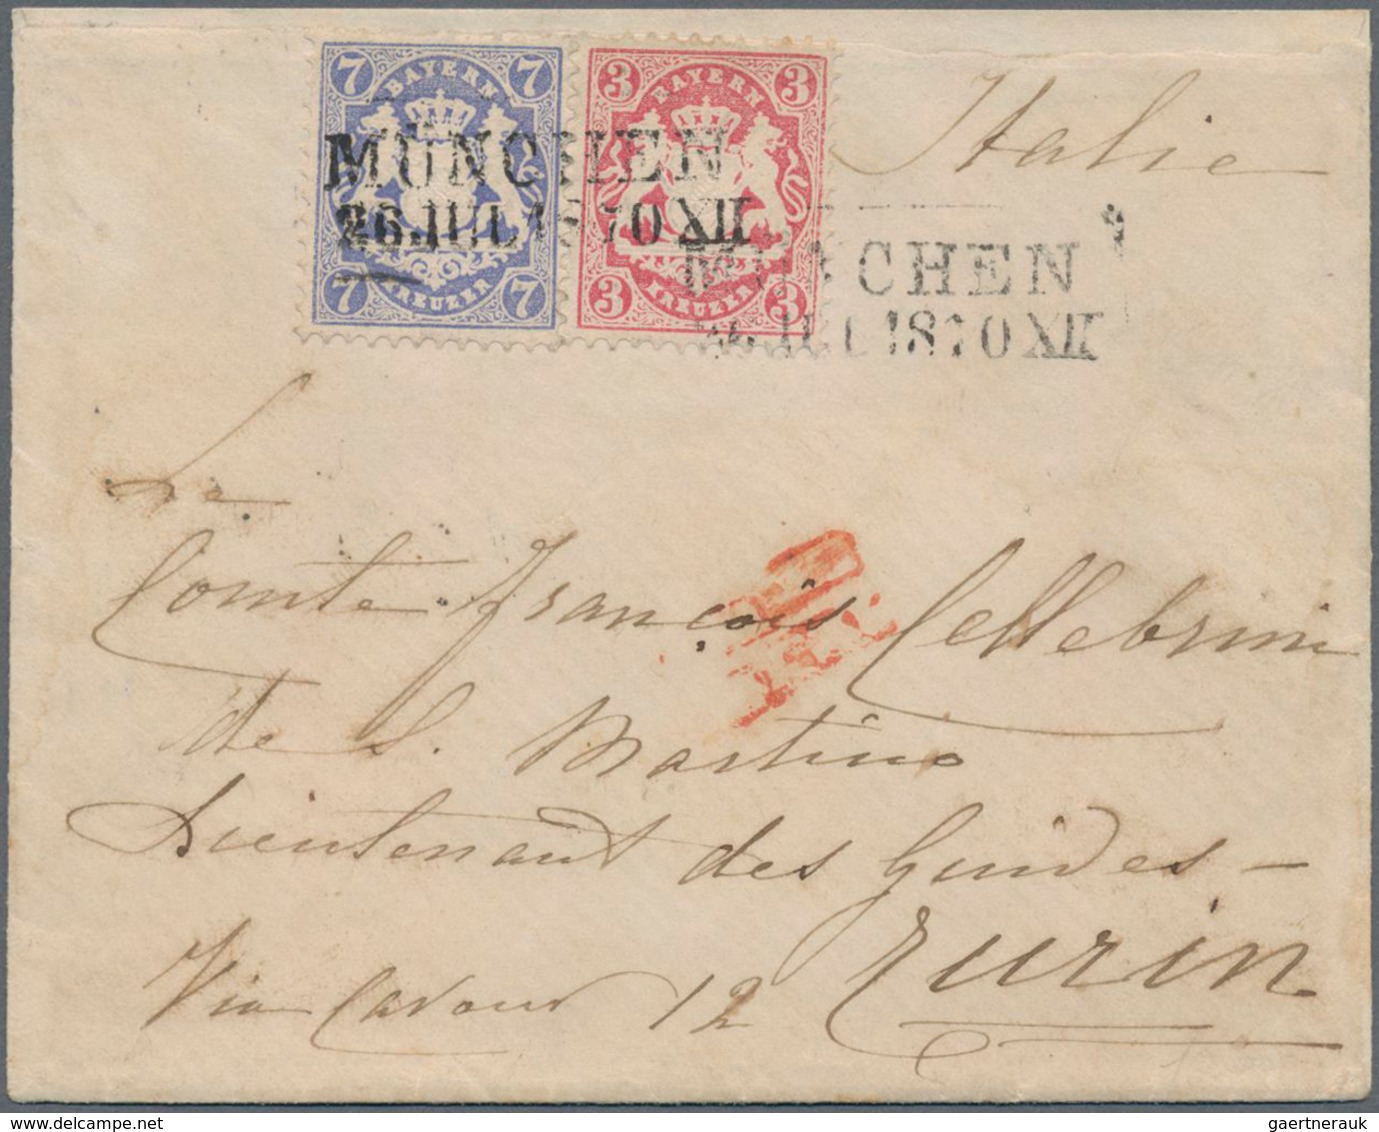 7 BAYERN 7
7 KREUZER 7
3 BAYERN 3
3 KREUZER 3
MÜNCHEN
26.JUL 1870 XII
MÜNCHEN
26. JUL 1870 XII
Italie
Le
Comte François Cellebrini
de S. Martino
Lieutenant des Guides –
Via Cavour 12 Turin
www.delcampe.net
gaertnerauk